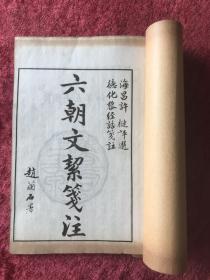 海昌許槤評選
德化黎經誥箋註
六朝文絜箋注
趙
石署